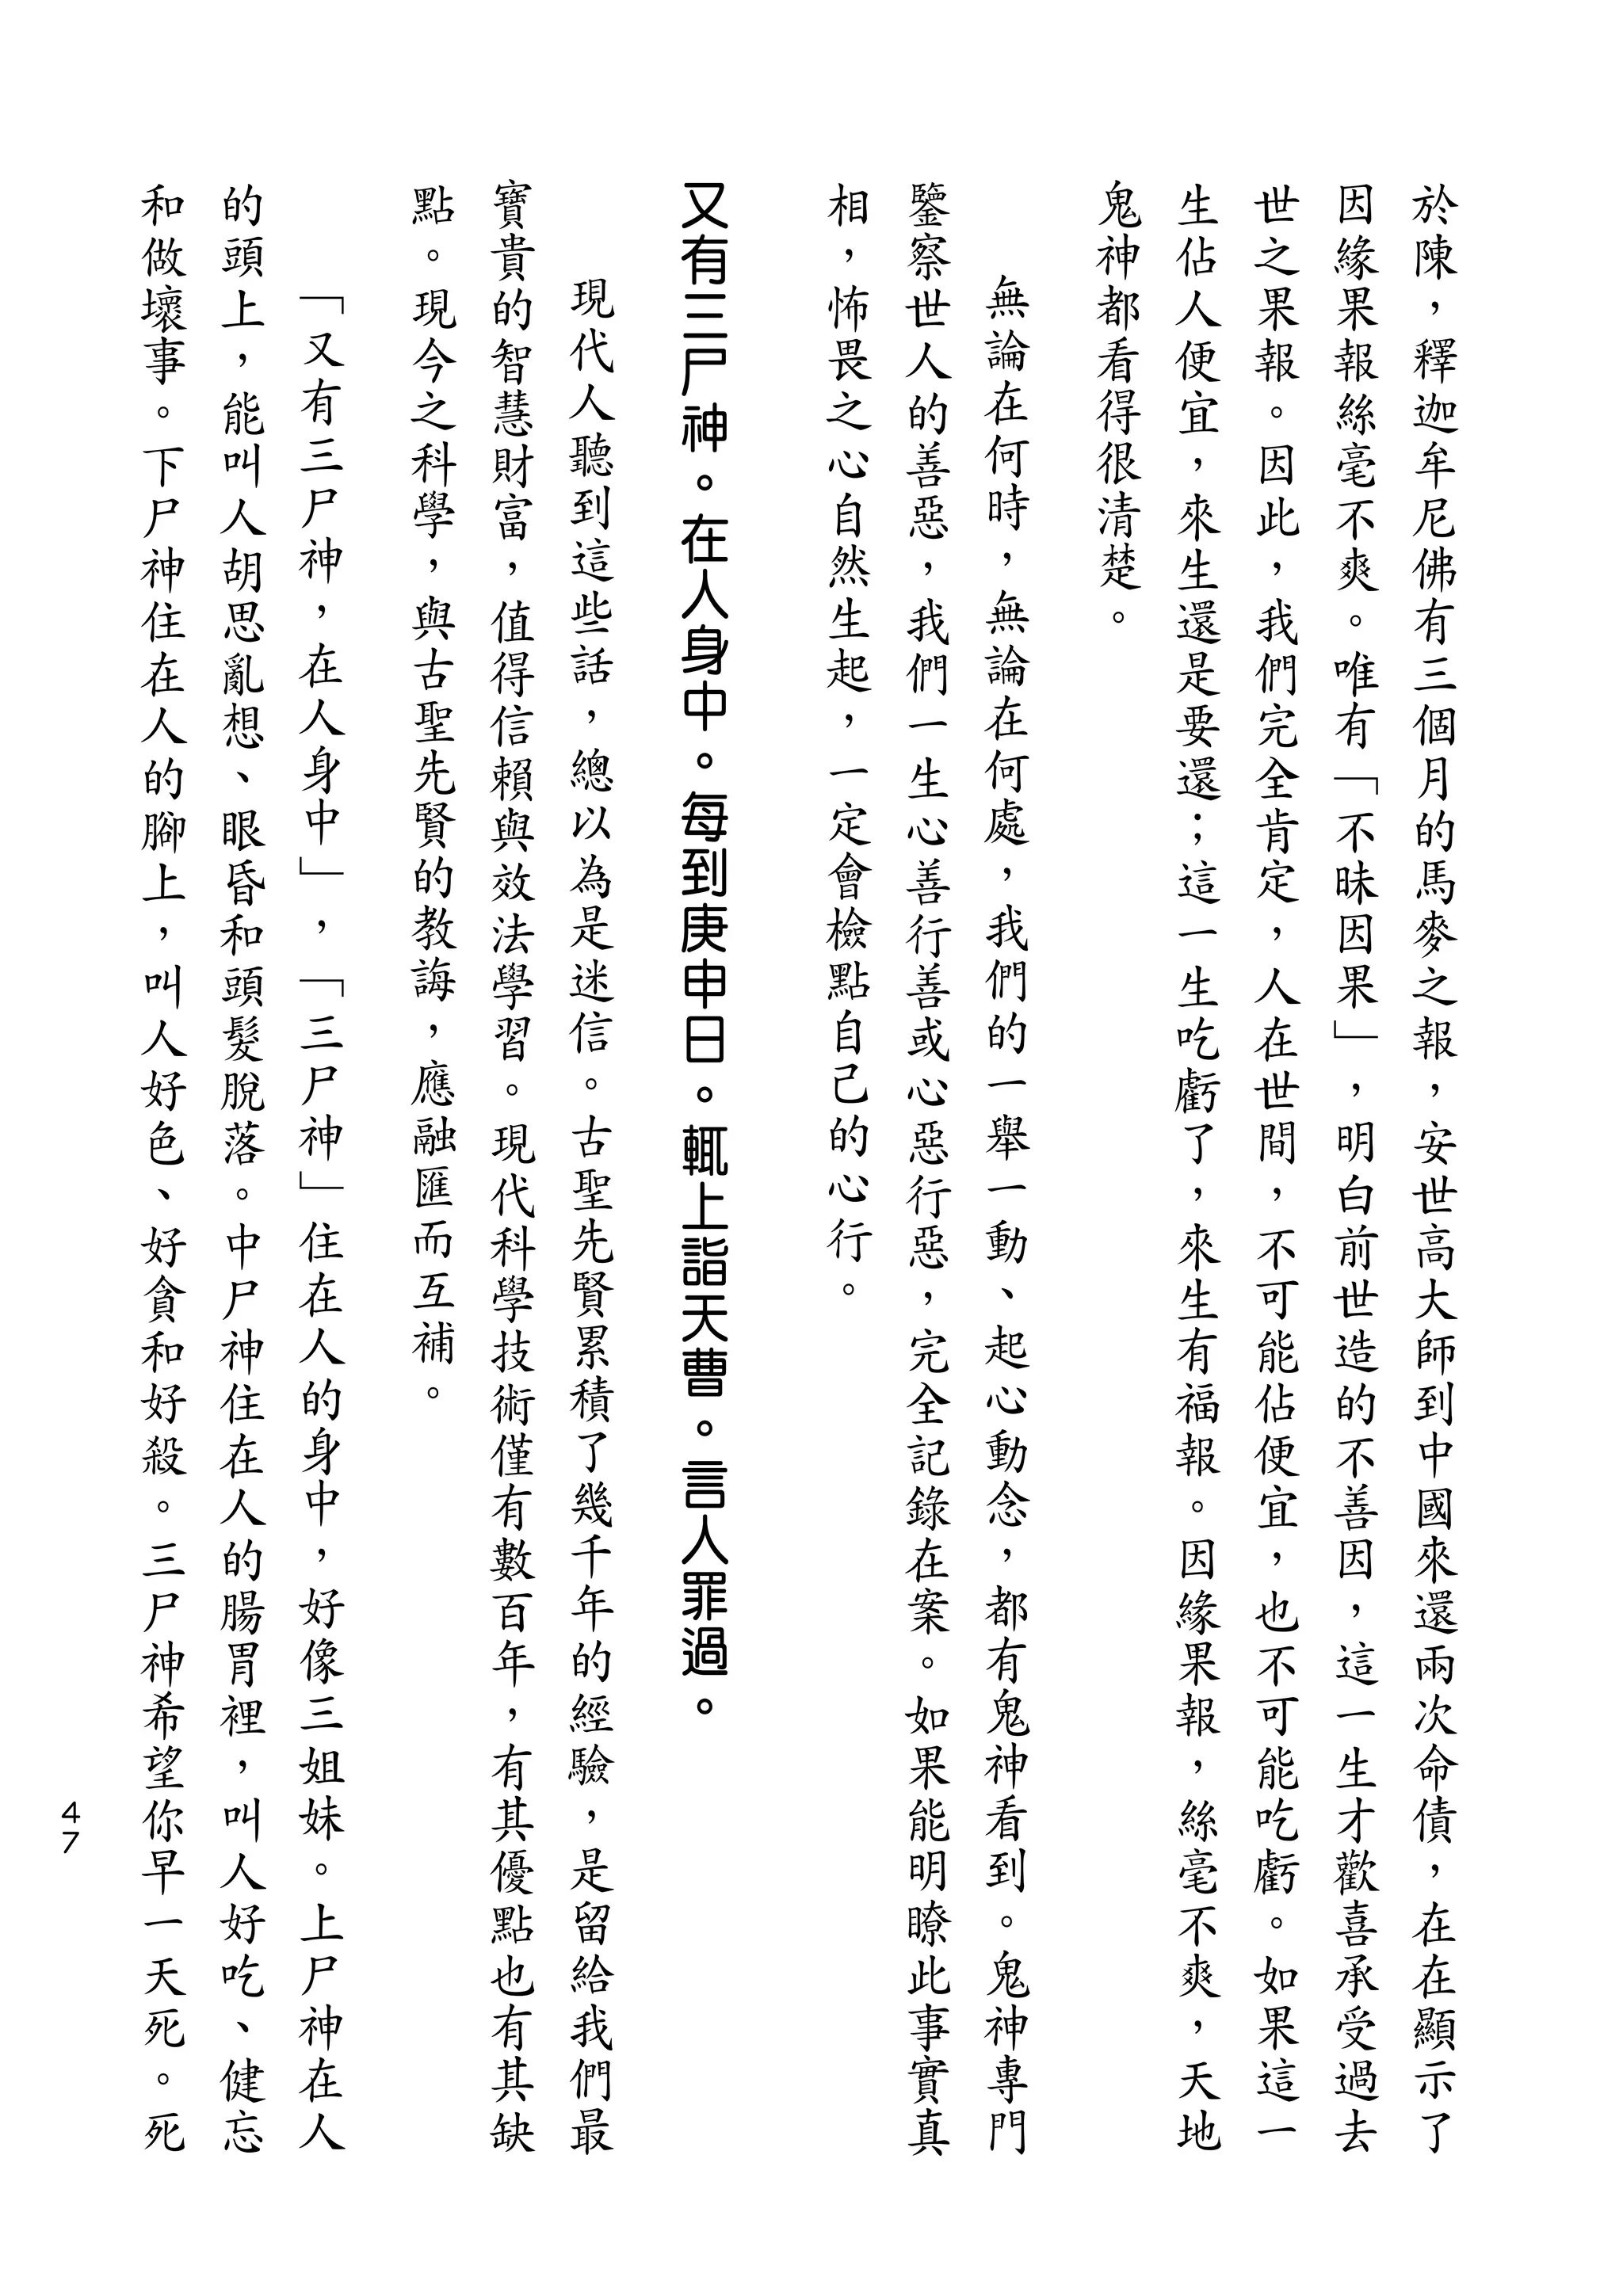 於陳，釋迦牟尼佛有三個月的馬麥之報，安世高大師到中國來還兩次命債，在在顯示了
因緣果報絲毫不爽。唯有「不昧因果」，明白前世造的不善因，這一生才歡喜承受過去
世之果報。因此，我們完全肯定，人在世間，不可能佔便宜，也不可能吃虧。如果這一
生佔人便宜，來生還是要還；這一生吃虧了，來生有福報。因緣果報，絲毫不爽，天地
鬼神都看得很清楚。
無論在何時，無論在何處，我們的一舉一動、起心動念，都有鬼神看到。鬼神專門
鑒察世人的善惡，我們一生心善行善或心惡行惡，完全記錄在案。如果能明瞭此事實真
相，怖畏之心自然生起，一定會檢點自己的心行。
又有三尸神。在人身中。每到庚申日。輒上詣天曹。言人罪過。
現代人聽到這些話，總以為是迷信。古聖先賢累積了幾千年的經驗，是留給我們最
寶貴的智慧財富，值得信賴與效法學習。現代科學技術僅有數百年，有其優點也有其缺
點。現今之科學，與古聖先賢的教誨，應融匯而互補。
「又有三尸神，在人身中」，「三尸神」住在人的身中，好像三姐妹。上尸神在人
的頭上，能叫人胡思亂想、眼昏和頭髮脫落。中尸神住在人的腸胃裡，叫人好吃、健忘
和做壞事。下尸神住在人的腳上，叫人好色、好貪和好殺。三尸神希望你早一天死。死
47